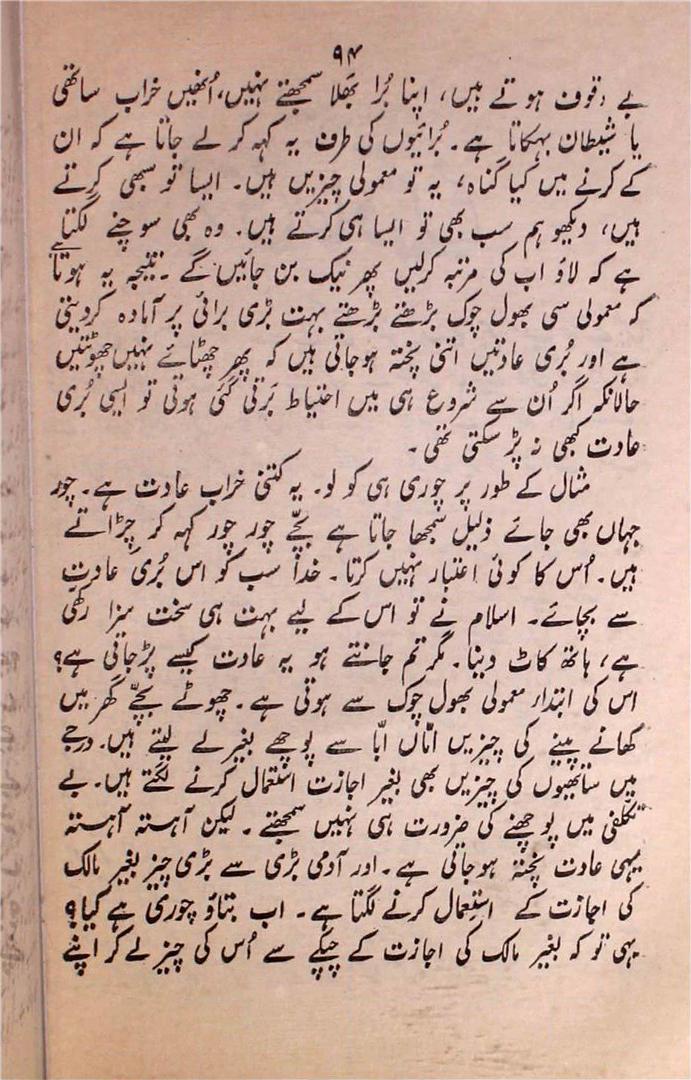 ۹۴
بے وقوف ہوتے ہیں، اپنا بُرا بَھلا سمجھتے نہیں، اُنھیں خراب ساتھی
یا شیطان بہکاتا ہے۔ بُرائیوں کی طرف یہ کہہ کر لے جاتا ہے کہ ان
کے کرنے میں کیا گناہ، یہ تو معمولی چیزیں ہیں۔ ایسا تو سبھی کرتے
ہیں، دیکھو ہم سب بھی تو ایسا ہی کرتے ہیں۔ وہ بھی سوچنے لگتا
ہے کہ لاؤ اب کی مرتبہ کرلیں پھر نیک بن جائیں گے۔ نتیجہ یہ ہوتا ہے
کہ معمولی سی بھول چوک بڑھتے بڑھتے بہت بڑی برائی پر آمادہ کردیتی
ہے اور بُری عادتیں اتنی پختہ ہوجاتی ہیں کہ پھر چھٹائے نہیں چھوٹتیں
حالانکہ اگر اُن سے شروع ہی میں احتیاط بَرتی گئی ہوتی تو ایسی بُری
عادت کبھی نہ پڑ سکتی تھی۔
مثال کے طور پر چوری ہی کو لو۔ یہ کتنی خراب عادت ہے۔ چور
جہاں بھی جائے ذلیل سمجھا جاتا ہے بچّے چور چور کہہ کر چڑاتے
ہیں۔ اُس کا کوئی اعتبار نہیں کرتا۔ خدا سب کو اس بُری عادت
سے بچائے۔ اسلام نے تو اس کے لیے بہت ہی سخت سزا رکھی
ہے، ہاتھ کاٹ دینا۔ مگر تم جانتے ہو یہ عادت کیسے پڑجاتی ہے؟
اس کی ابتدار معمولی بھول چوک سے ہوتی ہے۔ چھوٹے بچّے گھر میں
کھانے پینے کی چیزیں امّاں ابّا سے پوچھے بغیر لے لیتے ہیں۔ درجے
میں ساتھیوں کی چیزیں بھی بغیر اجازت استعمال کرنے لگتے ہیں۔ بے
تکلفی میں پوچھنے کی ضرورت ہی نہیں سمجھتے۔ لیکن آہستہ آہستہ
یہی عادت پختہ ہوجاتی ہے۔ اور آدمی بڑی سے بڑی چیز بغیر مالک
کی اجازت کے استعمال کرنے لگتا ہے۔ اب بتاؤ چوری ہے کیا؟
یہی تو کہ بغیر مالک کی اجازت کے چپکے سے اُس کی چیز لے کر اپنے